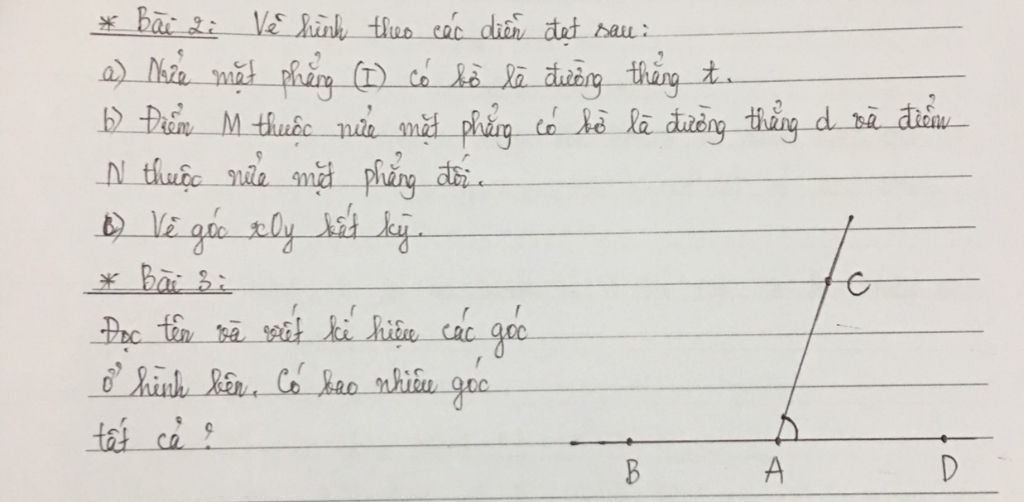 * Bài 2: Vẽ hình theo các diễn đạt sau:
a) Nửa mặt phẳng (I) có bờ là đường thẳng t.
b) Điểm M thuộc nửa mặt phẳng có bờ là đường thẳng d và điểm
N thuộc nửa mặt phẳng đối.
c) Vẽ góc xOy bất kỳ.
* Bài 3:
Đọc tên và viết kí hiệu các góc
ở hình bên. Có bao nhiêu góc
tất cả ?
C
B A D